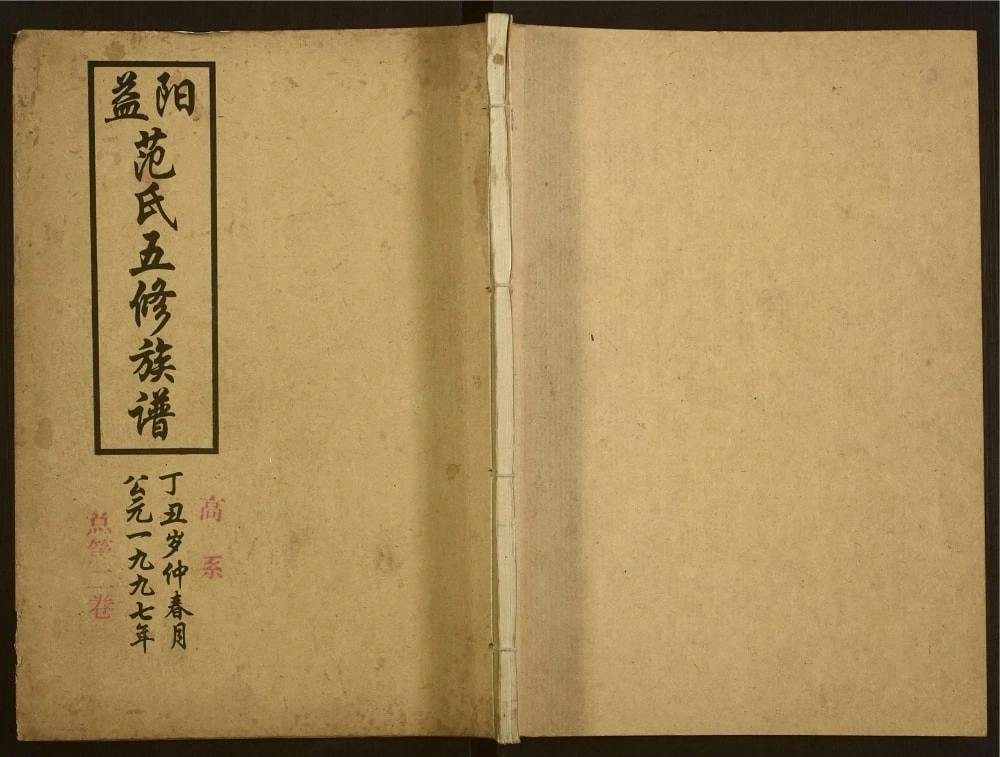 益阳
范氏五修族谱
高系
丁丑岁仲春月
公元一九九七年
总第二卷